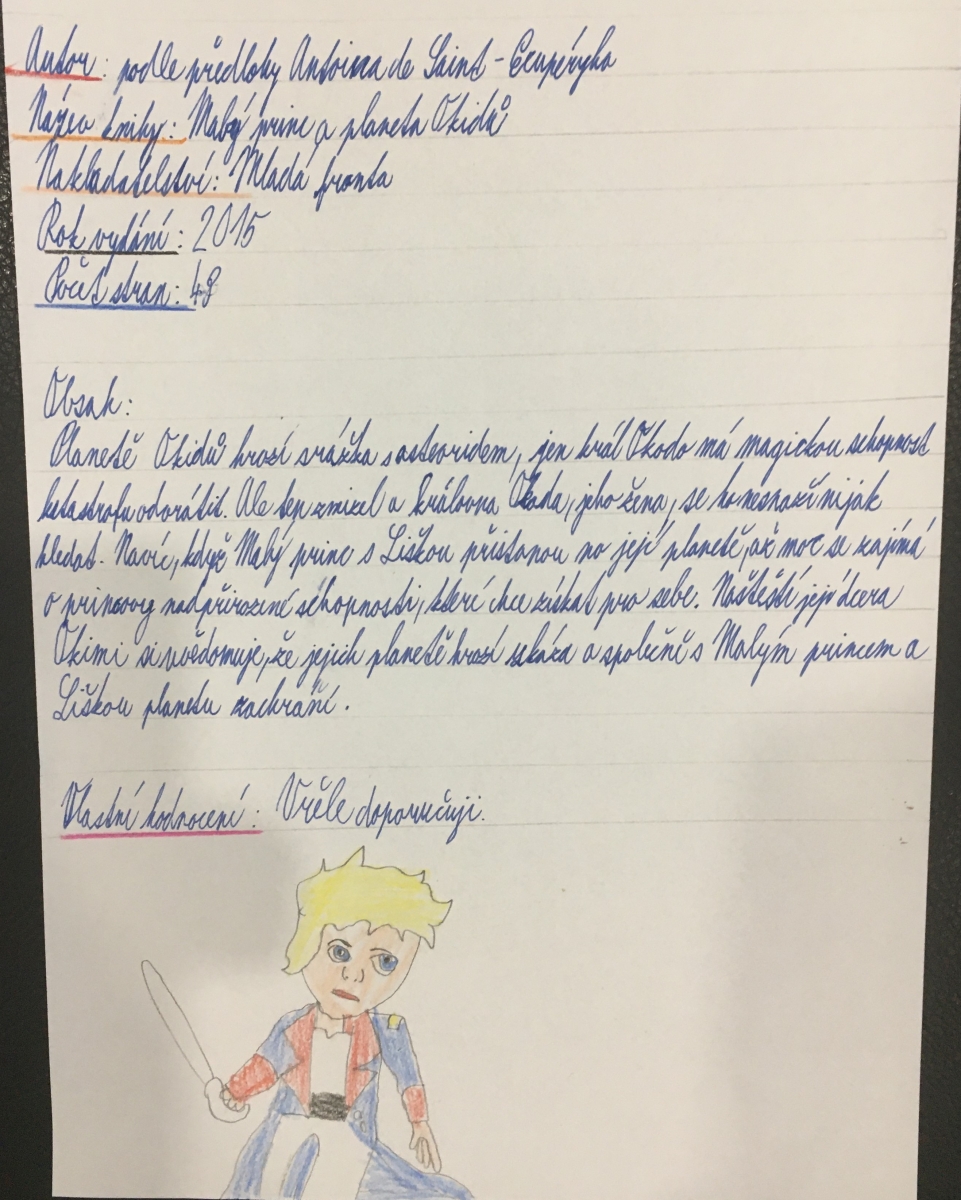 Autor: podle předlohy Antoina de Saint-Exupéryho
Název knihy: Malý princ a planeta Okidů
Nakladatelství: Mladá fronta
Rok vydání: 2015
Počet stran: 48
Obsah:
Planetě Okidů hrozí srážka s asteoridem, jen král Okodo má magickou schopnost
katastrofu odvrátit. Ale ten zmizel a královna Okada, jeho žena, se ho nesnaží nijak
hledat. Navíc, když Malý princ s Liškou přistanou na její planetě, až moc se zajímá
o princovy nadpřirozené schopnosti, které chce získat pro sebe. Naštěstí její dcera
Okimi si uvědomuje, že jejich planetě hrozí zkáza a společně s Malým princem a
Liškou planetu zachrání.
Vlastní hodnocení: Vřele doporučuji.